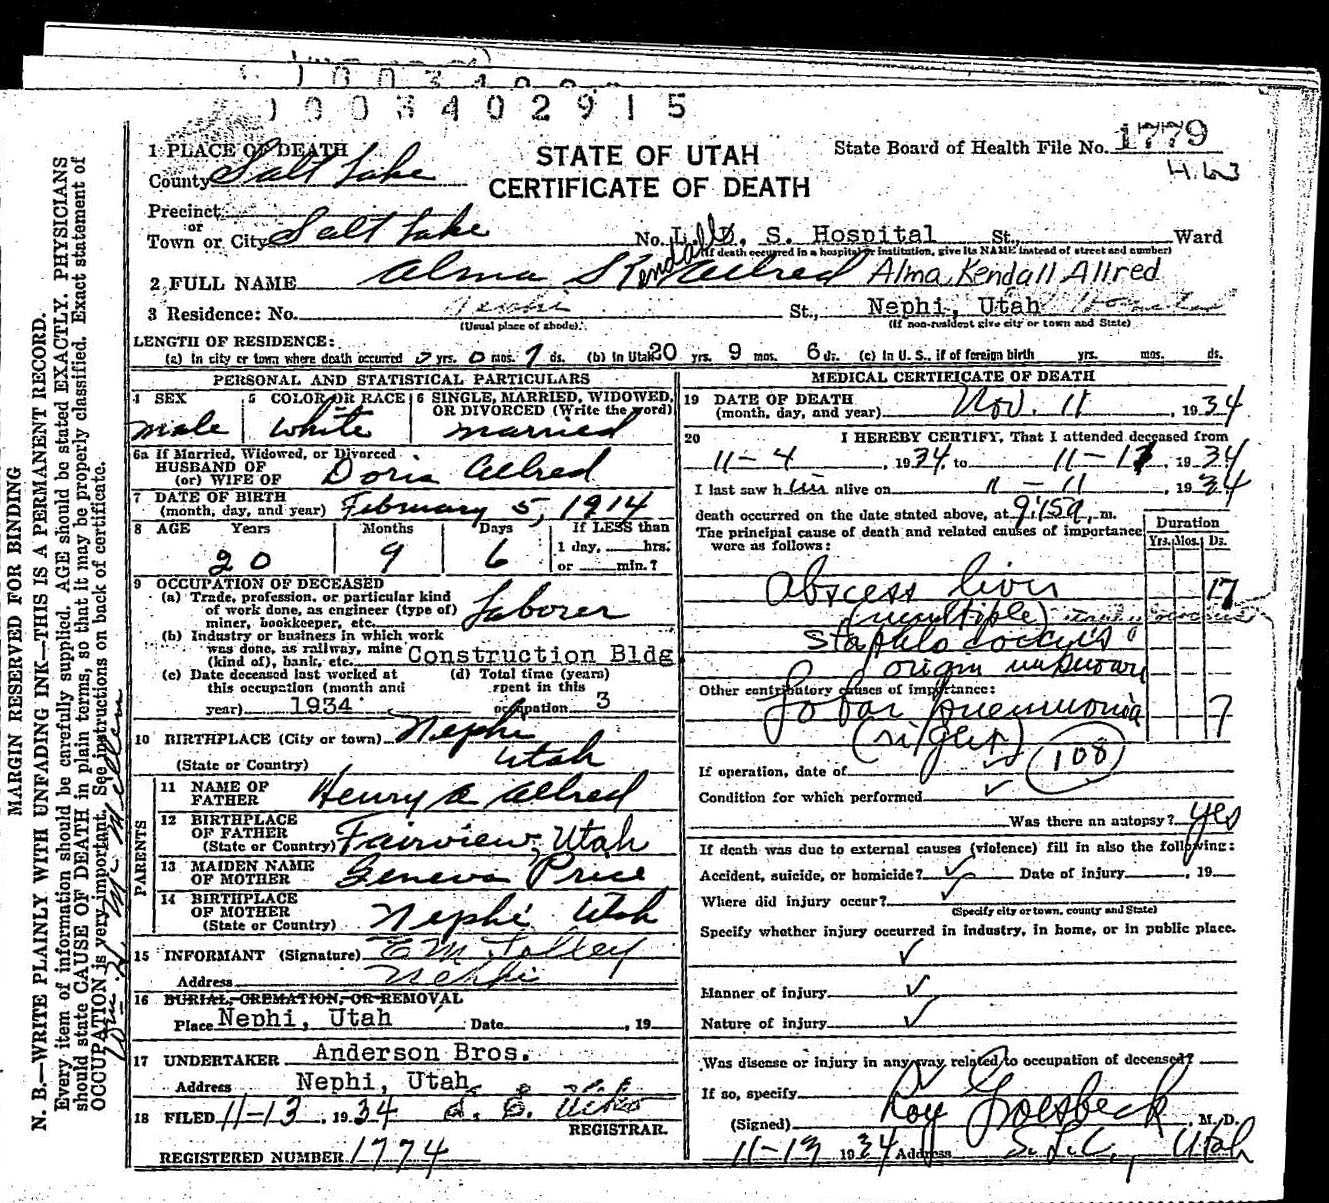 0003402915
1779
STATE OF UTAH
CERTIFICATE OF DEATH
State Board of Health File No. 1779
1 PLACE OF DEATH
County Salt Lake
Precinct
or
Town or City Salt Lake No. L. D. S. Hospital St., Ward
(If death occurred in a hospital or institution, give its NAME instead of street and number)
2 FULL NAME Alma S Kendall Allred Alma Kendall Allred
3 Residence: No. Nephi St., Nephi, Utah
(Usual place of abode) (If non-resident give city or town and State)
LENGTH OF RESIDENCE:
(a) In city or town where death occurred yrs. 0 mos. 7 ds. (b) In Utah 20 yrs. 9 mos. 6 ds. (c) In U. S., if of foreign birth yrs. mos. ds.
PERSONAL AND STATISTICAL PARTICULARS
4 SEX 5 COLOR OR RACE 6 SINGLE, MARRIED, WIDOWED, OR DIVORCED (Write the word)
male white married
6a If Married, Widowed, or Divorced
HUSBAND OF
(or) WIFE OF Doris Allred
7 DATE OF BIRTH
(month, day, and year) February 5, 1914
8 AGE Years Months Days If LESS than
1 day, hrs.
or min.?
20 9 6
9 OCCUPATION OF DECEASED
(a) Trade, profession, or particular kind
of work done, as engineer (type of)
miner, bookkeeper, etc. Laborer
(b) Industry or business in which work
was done, as railway, mine
(kind of), bank, etc. Construction Bldg
(c) Date deceased last worked at
this occupation (month and
year) 1934
(d) Total time (years)
spent in this
occupation 3
10 BIRTHPLACE (City or town) Nephi
(State or Country) Utah
PARENTS
11 NAME OF
FATHER Henry A Allred
12 BIRTHPLACE
OF FATHER
(State or Country) Fairview, Utah
13 MAIDEN NAME
OF MOTHER Geneva Price
14 BIRTHPLACE
OF MOTHER
(State or Country) Nephi Utah
15 INFORMANT (Signature) E M Tolley
Address Nephi
16 BURIAL, CREMATION, OR REMOVAL
Place Nephi, Utah Date , 19
17 UNDERTAKER Anderson Bros.
Address Nephi, Utah
18 FILED 11-13, 1934
REGISTRAR.
REGISTERED NUMBER 1774
MEDICAL CERTIFICATE OF DEATH
19 DATE OF DEATH
(month, day, and year) Nov. 11, 1934
20 I HEREBY CERTIFY, That I attended deceased from
11-4, 1934, to 11-11, 1934
I last saw him alive on 11-11, 1934
death occurred on the date stated above, at 9:15a, m.
The principal cause of death and related causes of importance
were as follows:
Duration
Yrs. Mos. Ds.
Abscess liver 17
(multiple)
Staphlo coccyis
origin unknown
Other contributory causes of importance:
Lobar pneumonia 7
(right) 108
If operation, date of
Condition for which performed
Was there an autopsy? yes
If death was due to external causes (violence) fill in also the following:
Accident, suicide, or homicide? Date of injury , 19
Where did injury occur?
(Specify city or town, county and State)
Specify whether injury occurred in industry, in home, or in public place.
Manner of injury
Nature of injury
Was disease or injury in any way related to occupation of deceased?
If so, specify
(Signed) Roy Groesbeck, M. D.
11-13 1934 Address S. L. C., Utah
MARGIN RESERVED FOR BINDING
N. B.—WRITE PLAINLY WITH UNFADING INK—THIS IS A PERMANENT RECORD.
Every item of information should be carefully supplied. AGE should be stated EXACTLY. PHYSICIANS
should state CAUSE OF DEATH in plain terms, so that it may be properly classified. Exact statement of
OCCUPATION is very important. See instructions on back of certificate.